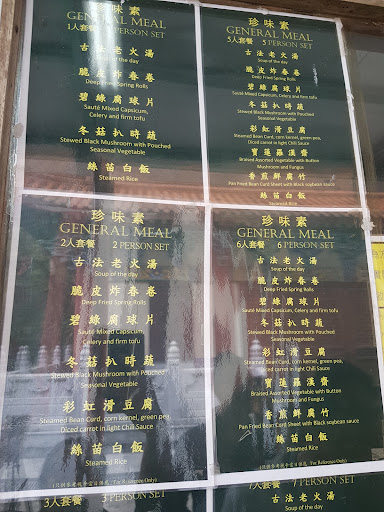 珍味素
GENERAL MEAL
1人套餐 1 PERSON SET
古法老火湯
Soup of the day
脆皮炸春卷
Deep Fried Spring Rolls
碧綠腐球片
Sauté Mixed Capsicum,
Celery and firm tofu
冬菇扒時蔬
Stewed Black Mushroom with Pouched
Seasonal Vegetable
絲苗白飯
Steamed Rice
珍味素
GENERAL MEAL
5人套餐 5 PERSON SET
古法老火湯
Soup of the day
脆皮炸春卷
Deep Fried Spring Rolls
碧綠腐球片
Sauté Mixed Capsicum, Celery and firm tofu
冬菇扒時蔬
Stewed Black Mushroom with Pouched
Seasonal Vegetable
彩虹滑豆腐
Steamed Bean Curd, corn kernel, green pea,
Diced carrot in light Chili Sauce
寶蓮羅漢齋
Braised Assorted Vegetable with Button
Mushroom and Fungus
香煎鮮腐竹
Pan Fried Bean Curd Sheet with Black soybean sauce
絲苗白飯
Steamed Rice
珍味素
GENERAL MEAL
2人套餐 2 PERSON SET
古法老火湯
Soup of the day
脆皮炸春卷
Deep Fried Spring Rolls
碧綠腐球片
Sauté Mixed Capsicum,
Celery and firm tofu
冬菇扒時蔬
Stewed Black Mushroom with Pouched
Seasonal Vegetable
彩虹滑豆腐
Steamed Bean Curd, corn kernel, green pea,
Diced carrot in light Chili Sauce
絲苗白飯
Steamed Rice
For Reference Only)
珍味素
GENERAL MEAL
6人套餐 6 PERSON SET
古法老火湯
Soup of the day
脆皮炸春卷
Deep Fried Spring Rolls
碧綠腐球片
Sauté Mixed Capsicum, Celery and firm tofu
冬菇扒時蔬
Stewed Black Mushroom with Pouched
Seasonal Vegetable
彩虹滑豆腐
Steamed Bean Curd, corn kernel, green pea,
Diced carrot in light Chili Sauce
寶蓮羅漢齋
Braised Assorted Vegetable with Button
Mushroom and Fungus
香煎鮮腐竹
Pan Fried Bean Curd Sheet with Black soybean sauce
絲苗白飯
Steamed Rice
For Reference Only)
3人套餐 3 PERSON SET
7人套餐 7 PERSON SET
古法老火湯